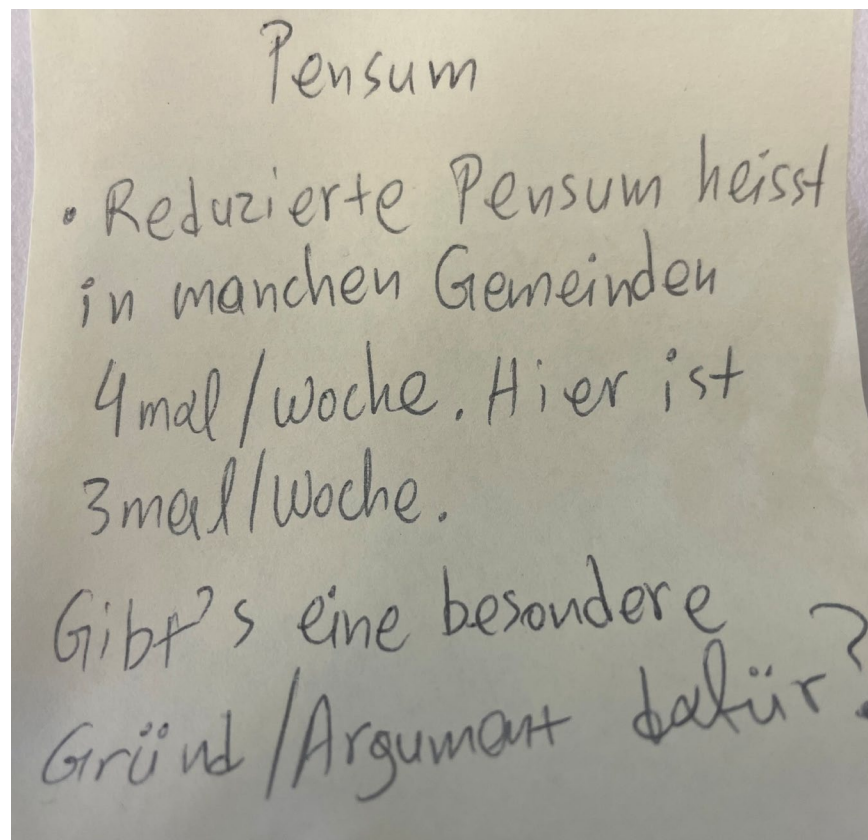 Pensum
• Reduzierte Pensum heisst
in manchen Gemeinden
4mal/Woche. Hier ist
3mal/Woche.
Gibt's eine besondere
Gründ/Argument dafür?